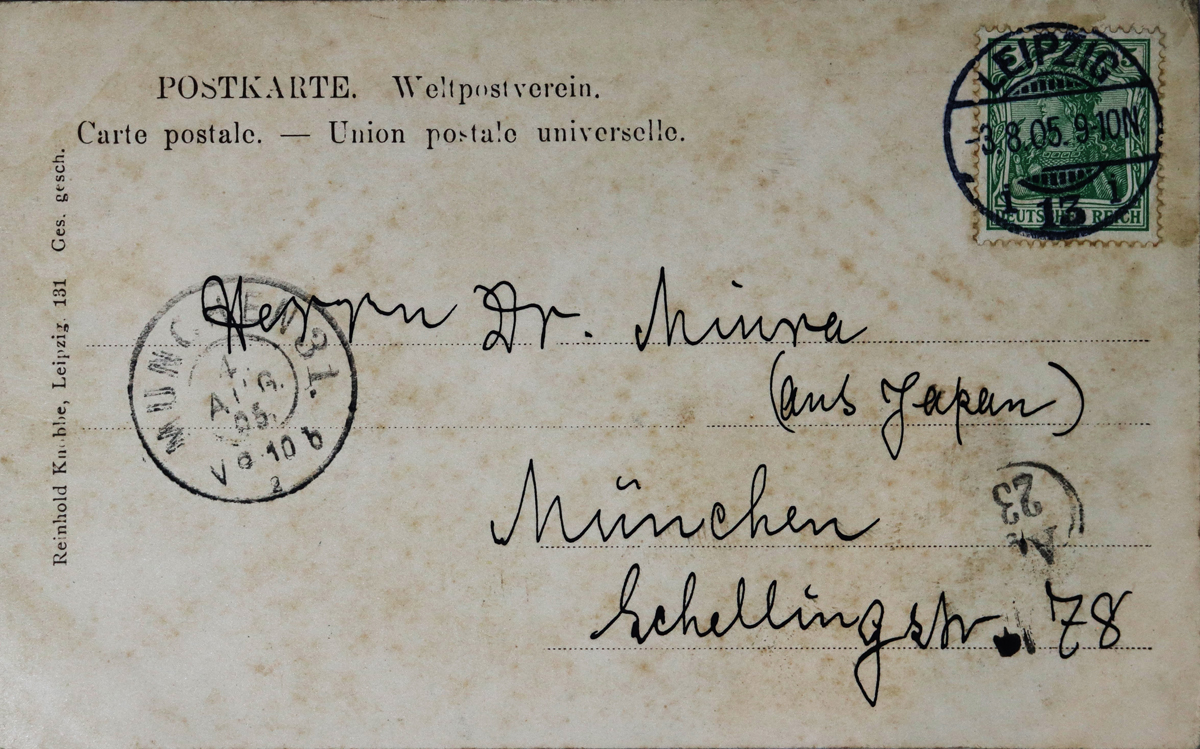 POSTKARTE. Weltpostverein.
Carte postale. — Union postale universelle.
LEIPZIG
-3.8.05.9-10N.
13
DEUTSCHES REICH
Reinhold Knobbe, Leipzig. 131 Ges. gesch.
MUNCHEN 31.
4.
AUG.
05.
V 9-10 b
2
Herrn Dr. Miura
(aus Japan)
München
Schellingstr. 78
23